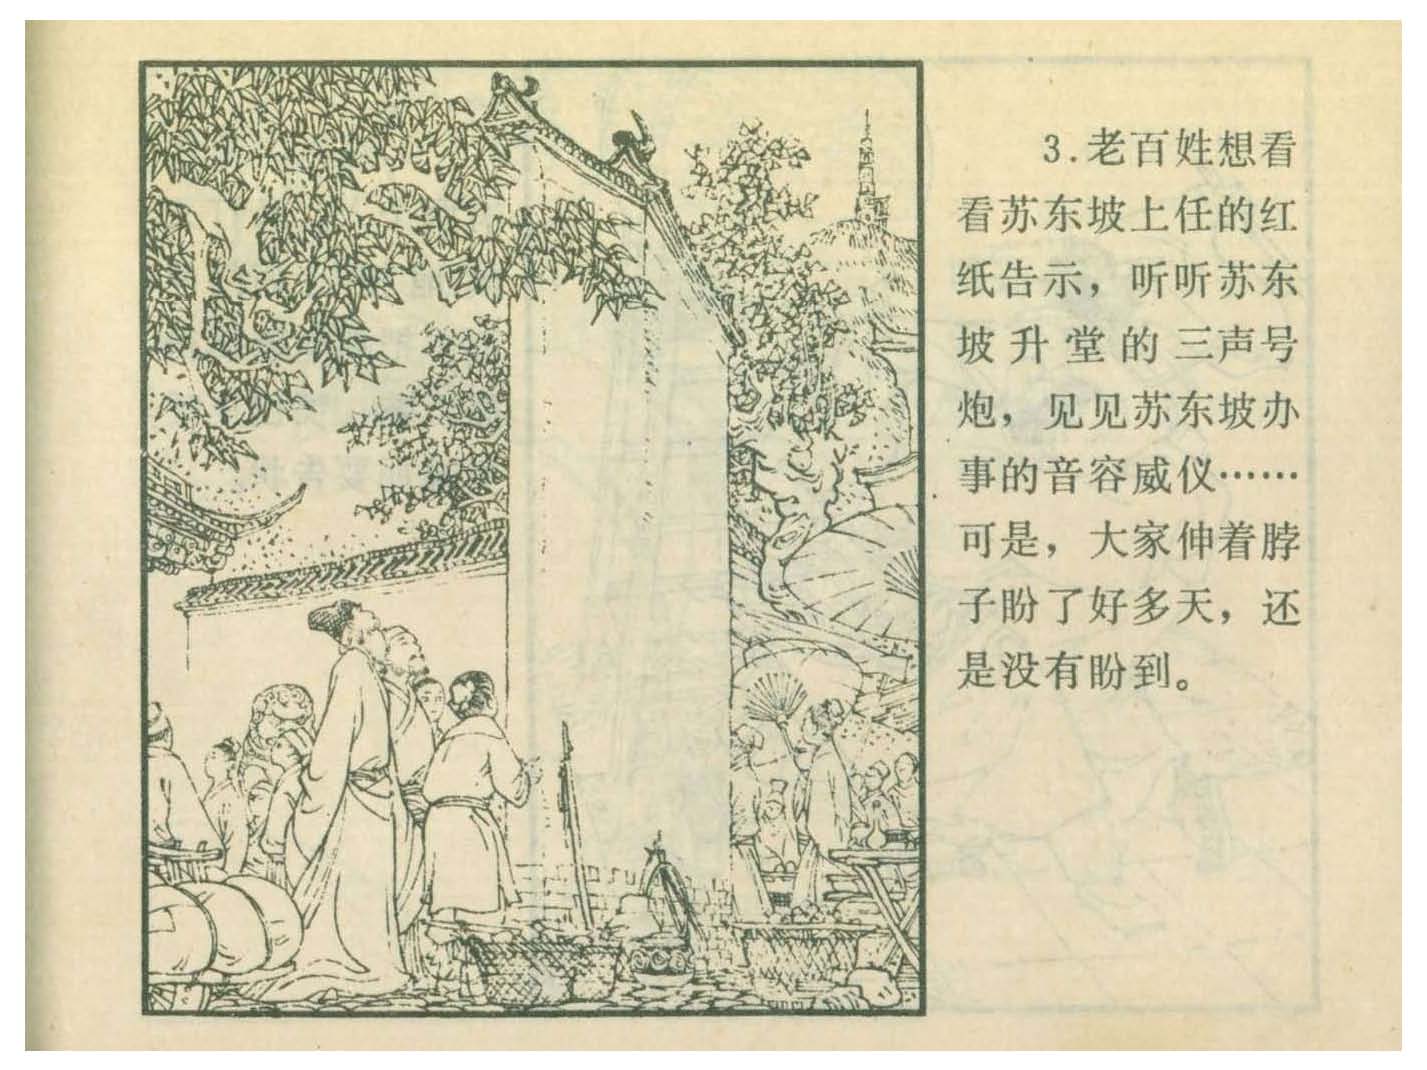 3.老百姓想看
看苏东坡上任的红
纸告示，听听苏东
坡升堂的三声号
炮，见见苏东坡办
事的音容威仪……
可是，大家伸着脖
子盼了好多天，还
是没有盼到。